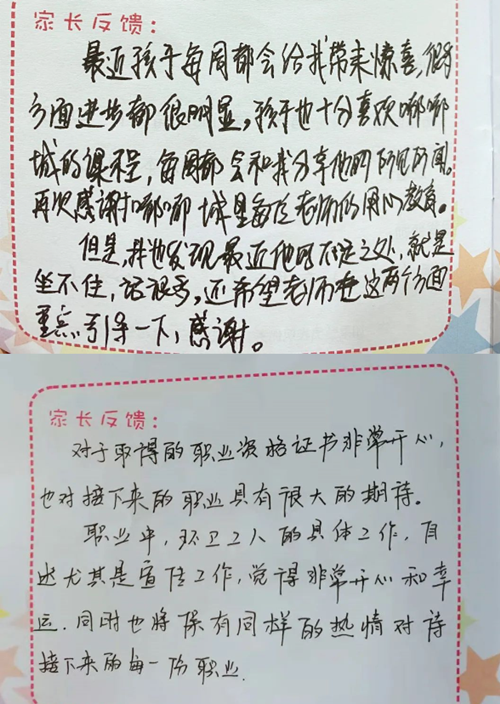 家长反馈:
最近孩子每周都会给我带来惊喜,很多
方面进步都很明显,孩子也十分喜欢嘟嘟
城的课程,每周都会和我分享他的所见所闻。
再次感谢嘟嘟城里每位老师的用心教育。
但是,我也发现最近他的不足之处,就是
坐不住,话很多,还希望老师在这两个方面
重点引导一下,感谢。
家长反馈:
对于取得的职业资格证书非常开心,
也对接下来的职业具有很大的期待。
职业中,环卫工人的具体工作,自
述尤其是宣传工作,觉得非常开心和幸
运.同时也将保有同样的热情对待
接下来的每一份职业.